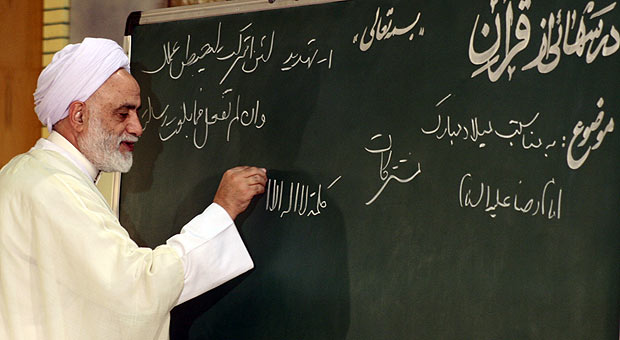 درسهائی از قرآن
"بسمه تعالی"
موضوع: به مناسبت میلاد مبارک
امام رضا علیه السلام
مشترکات
۱- تهدید لئن اشرکت لیحبطن عملک
وان لم تفعل فما بلغت رسالته
کلمة لا اله الا